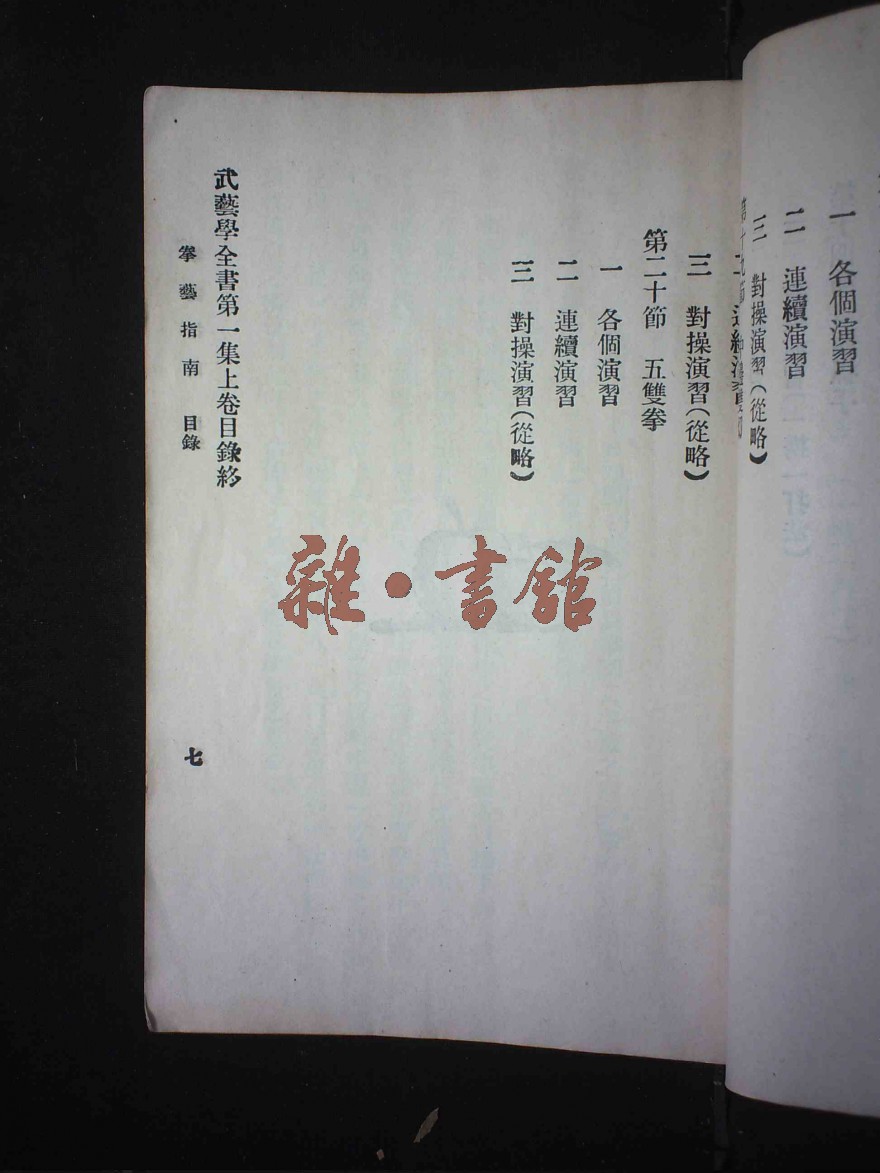 一 各個演習
二 連續演習
三 對操演習(從略)
三 對操演習(從略)
第二十節 五雙拳
一 各個演習
二 連續演習
三 對操演習(從略)
武藝學全書第一集上卷目錄終
拳藝指南 目錄
七
雜·書館